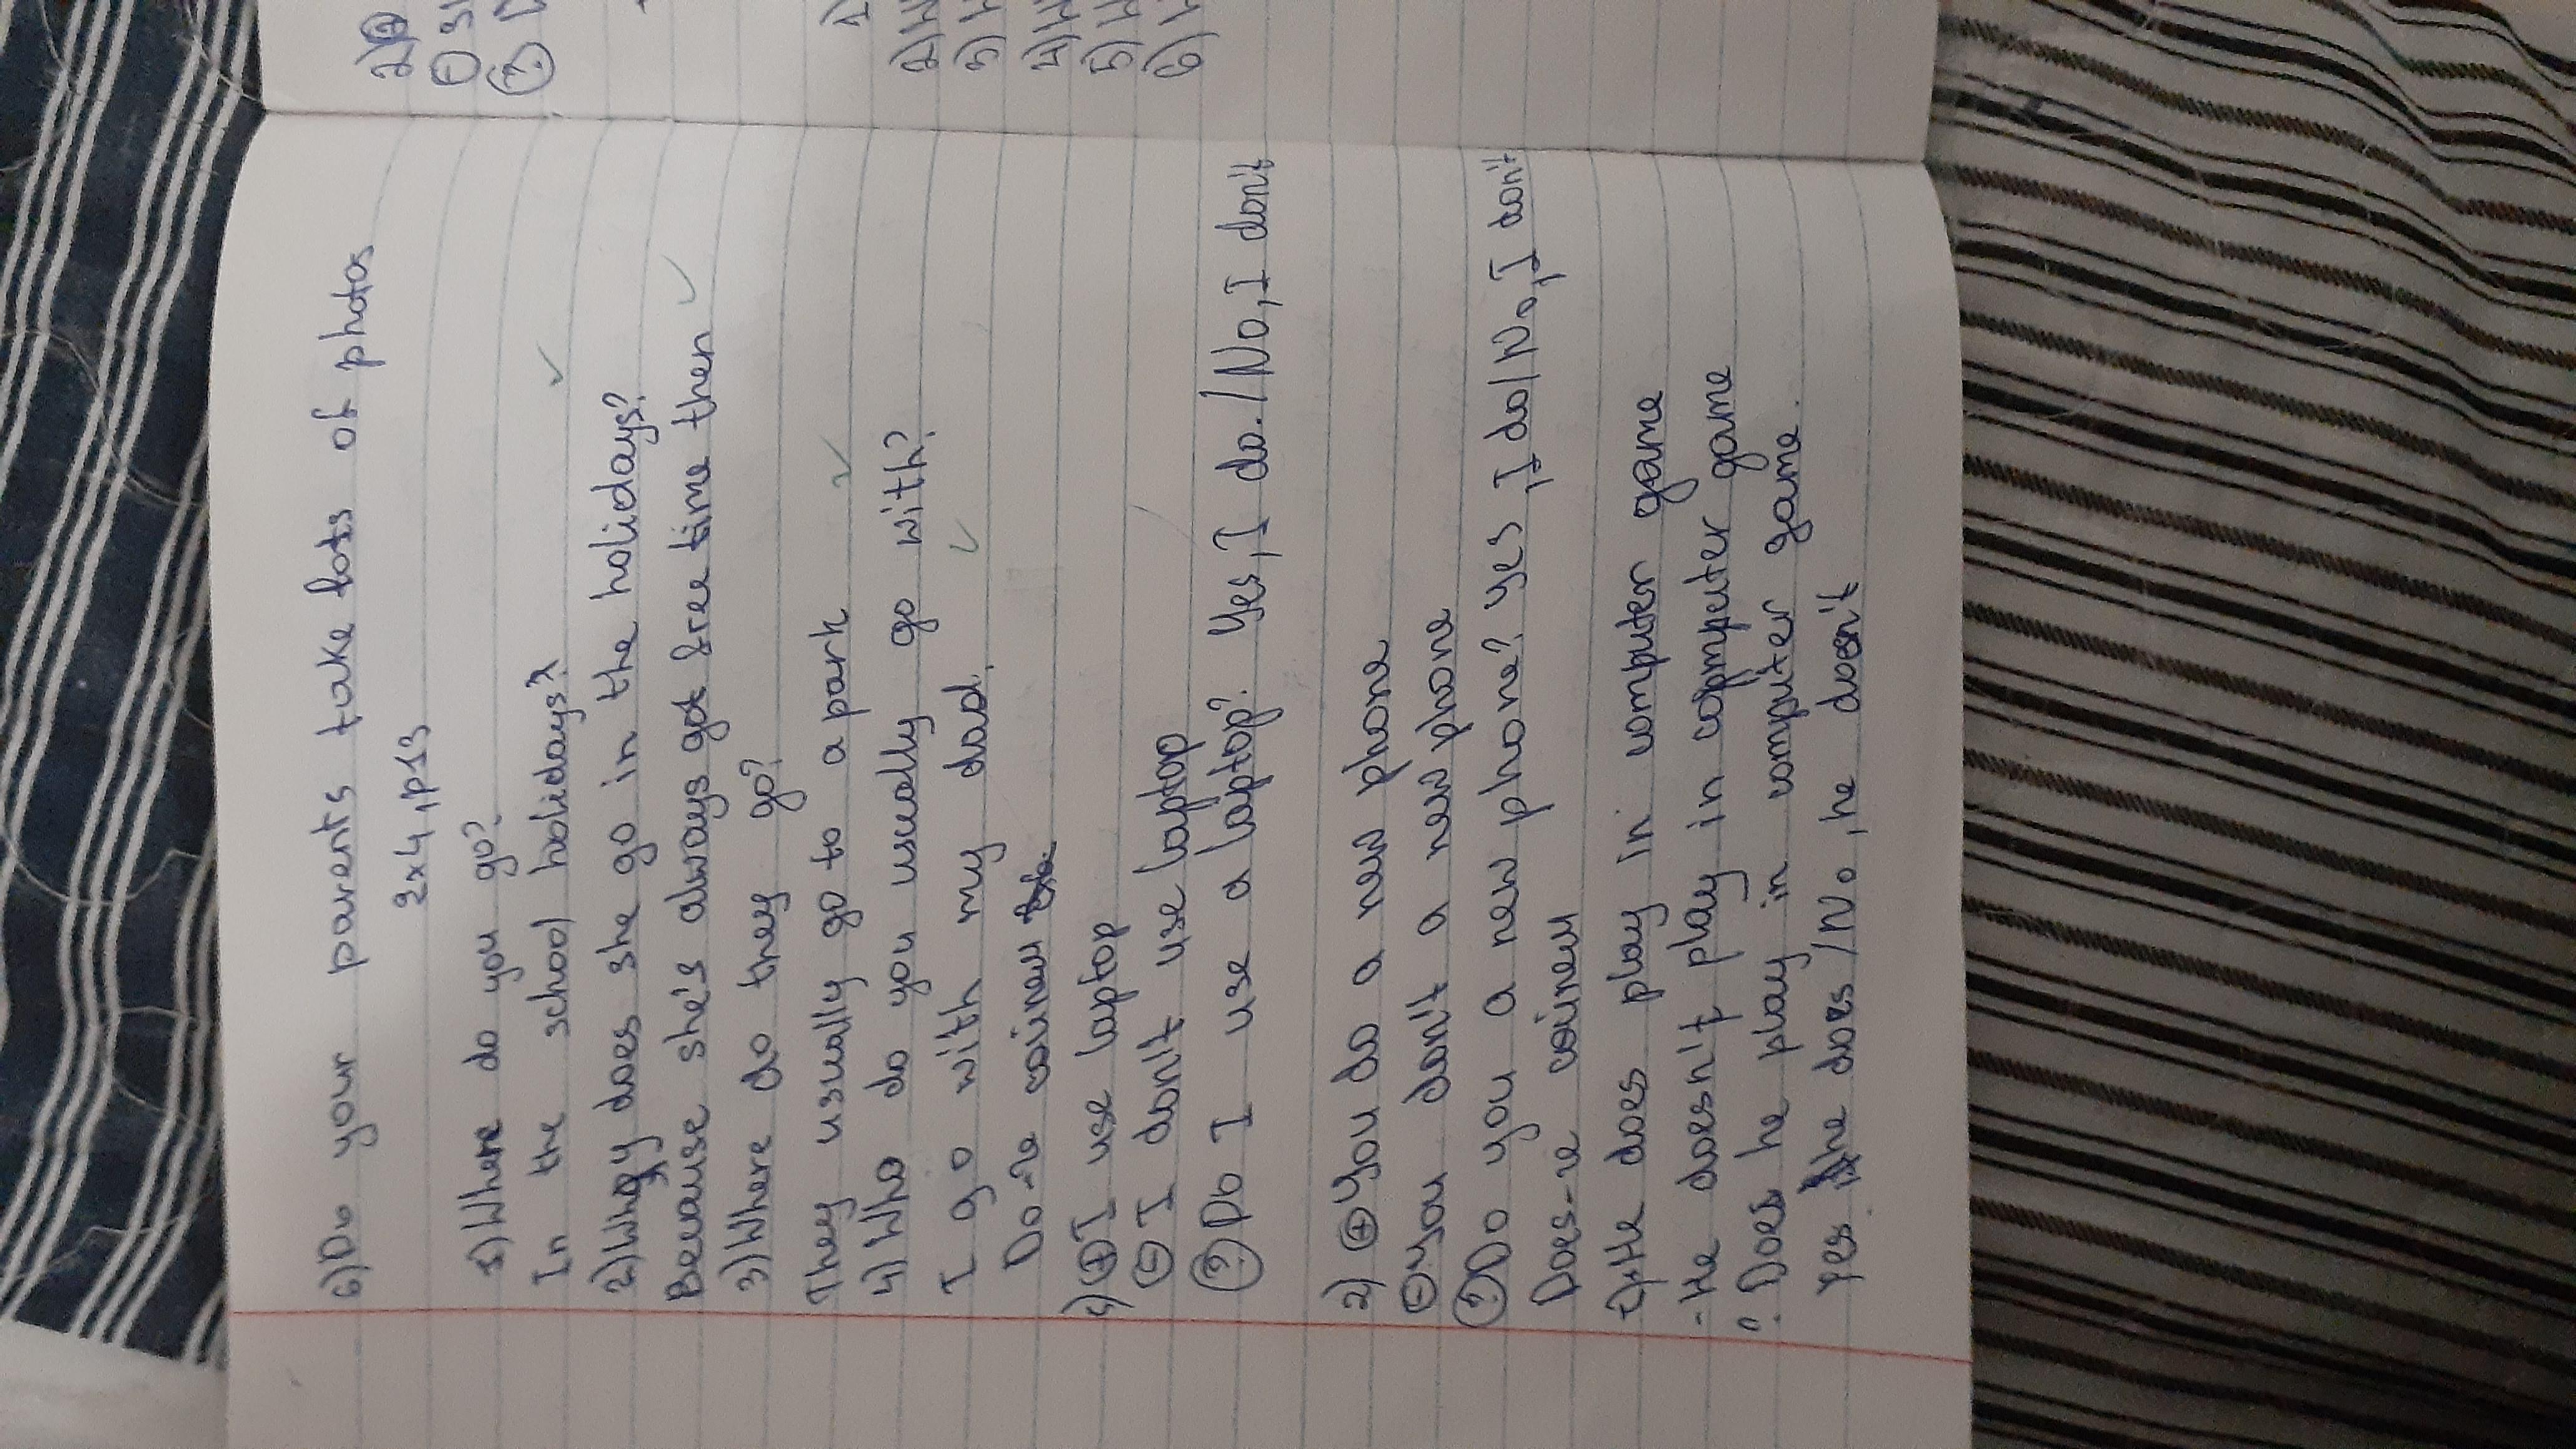 6) Do your parents take lots of photos
2x4, p13
1) Where do you go?
In the school holidays?
2) Why does she go in the holidays?
Because she's always got free time then
3) Where do they go?
They usually go to a park
4) Who do you usually go with?
I go with my dad.
Do-ле
1) + I use laptop
- I don't use laptop
? Do I use a laptop? Yes, I do. / No, I don't
2) + You do a new phone
- you don't a new phone
? Do you a new phone? yes, I do / No, I don't
Does-ле
He does play in computer game
- He doesn't play in copmputer game
? Does he play in computer game.
Yes he does / No, he doesn't
2
3)
4)
5)
6)